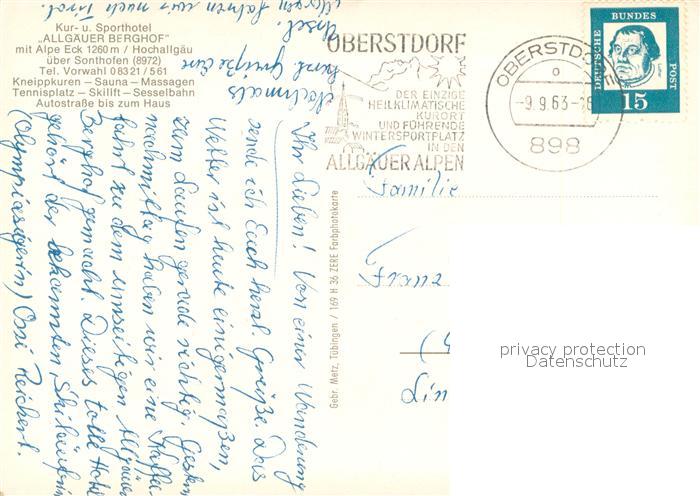 Kur- u. Sporthotel
„ALLGÄUER BERGHOF"
mit Alpe Eck 1260 m / Hochallgäu
über Sonthofen (8972)
Tel. Vorwahl 0 8321 / 561
Kneippkuren – Sauna – Massagen
Tennisplatz – Skilift – Sesselbahn
Autostraße bis zum Haus
OBERSTDORF
DER EINZIGE
HEILKLIMATISCHE
KURORT
UND FÜHRENDE
WINTERSPORTPLATZ
IN DEN
ALLGÄUER ALPEN
OBERSTDORF
-9.9.63-
898
DEUTSCHE
BUNDES
POST
15
Ihr Lieben! Von einer Wanderung
sende ich Euch herzl. Grüße. Das
Wetter ist heute einigermaßen,
zum Laufen gerade richtig. Gestern
nachmittag haben wir eine Kaffee-
fahrt zu dem umseitigen Allgäuer
Berghof gemacht. Dieses tolle Hotel
gehört der bekannten Skiläuferin
(Olympiasiegerin) Ossi Reichert.
Morgen fahren wir nach Tirol.
Nochmals
herzl. Grüße Eure
Ursel.
Gebr. Metz, Tübingen / 169 H 36 ZERE Farbphotokarte
Familie
Franz
Lin
privacy protection
Datenschutz